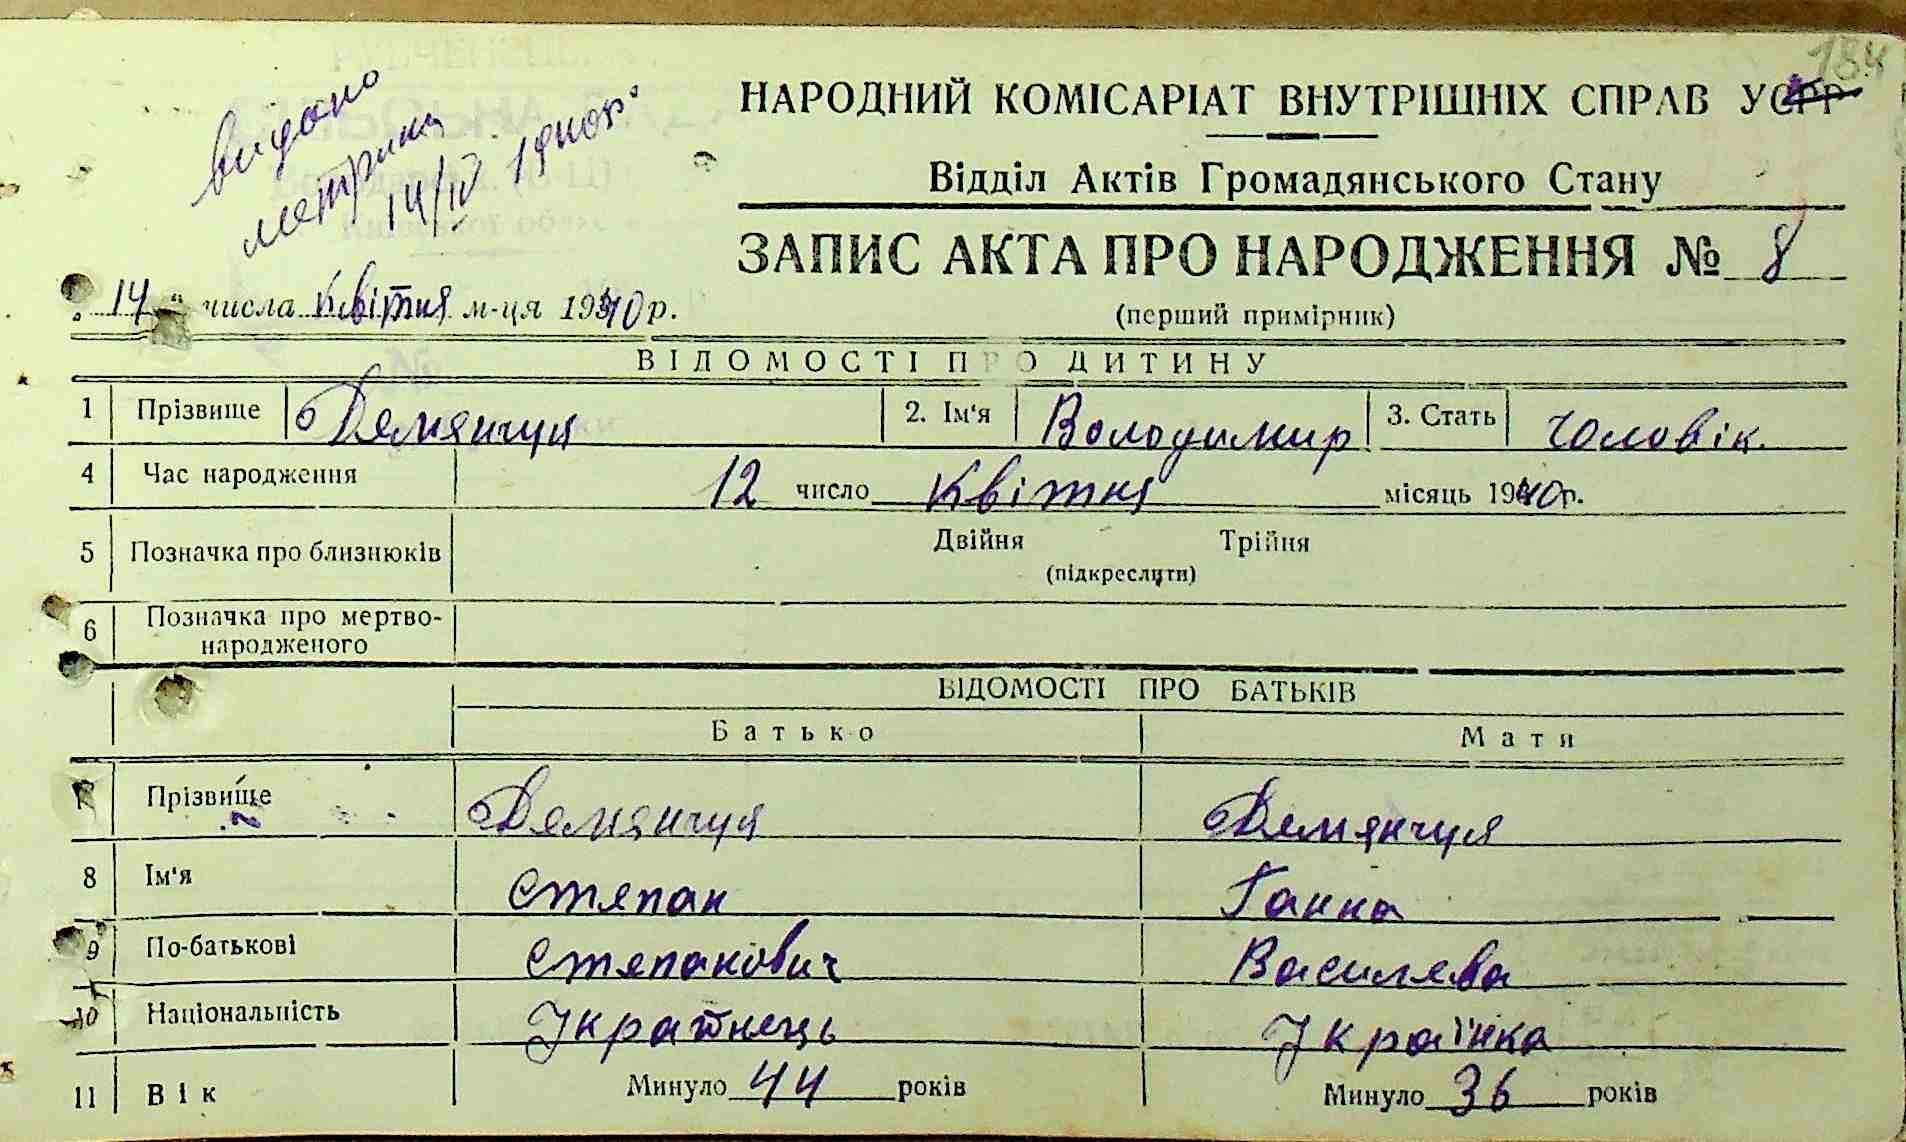 184
видано
метрики
14/IV
НАРОДНИЙ КОМІСАРІАТ ВНУТРІШНІХ СПРАВ УСРР
Відділ Актів Громадянського Стану
ЗАПИС АКТА ПРО НАРОДЖЕННЯ № 8
14 " числа Квітня м-ця 1940 р.
(перший примірник)
ВІДОМОСТІ ПРО ДИТИНУ
1 Прізвище Демянчуя 2. Ім'я Володимир 3. Стать чоловік.
4 Час народження 12 число Квітня місяць 1940р.
5 Позначка про близнюків Двійня Трійня
(підкреслити)
6 Позначка про мертво-
народженого
ВІДОМОСТІ ПРО БАТЬКІВ
Батько Мати
7 Прізвище Демянчуя Демянчуя
8 Ім'я Степан Ганна
9 По-батькові Степанович Василева
10 Національність Українець Українка
11 Вік Минуло 44 років Минуло 36 років